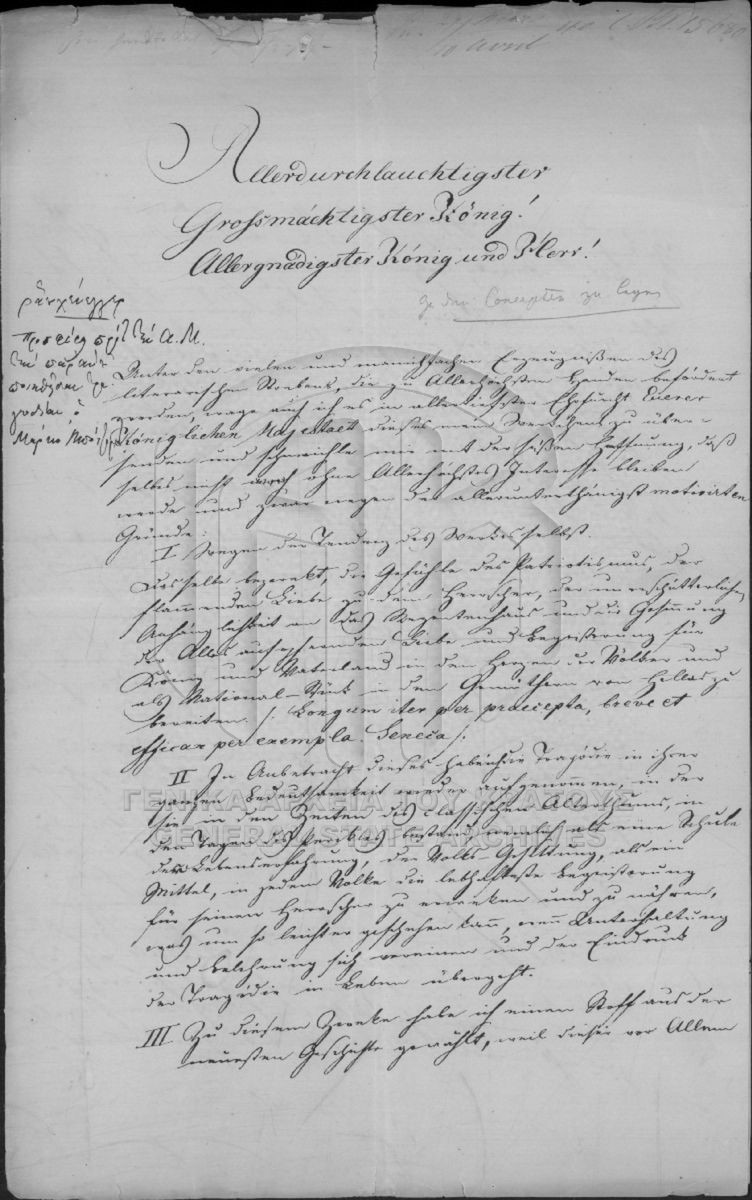 10 avril
Allerdurchlauchtigster
Grossmächtigster König!
Allergnädigster König und Herr!
zu den Concepten zu legen
Unter den vielen und mannichfachen Erzeugnißen des
literarischen Strebens, die zu Allerhöchsten Handen befördert
werden, wage auch ich es in allertiefster Ehrfurcht Euerer
Königlichen Majestaet dieses mein Werkchen zu über-
senden und schmeichle mir mit der süßen Hoffnung, daß
selbes nicht ohne Allerhöchstes Interesse bleiben
werde und zwar wegen der allerunterthänigst motivirten
Gründe:
I Wegen der Tendenz des Werkes selbst.
Dasselbe bezweckt, die Gefühle des Patriotismus, der
flammenden Liebe zu dem Herrscher, der unerschütterlichen
Anhänglichkeit an das Regentenhaus und die Gesinnung
der Alles aufopfernden Liebe und Begeisterung für
König und Vaterland in den Herzen der Völker und
als National-Stück in den Gemüthern von Hellas zu
bereiten. /: Longum iter per praecepta, breve et
efficax per exempla. Seneca :/
II In Anbetracht dieses habe ich die Tragödie in ihrer
ganzen Bedeutsamkeit wieder aufgenommen, in der
sie in den Zeiten des classischen Alterthums, in
den Tagen des Perikles bestand, nemlich als eine Schule
der Lebenserfahrung, der Volks-Gesittung, als ein
Mittel, in jedem Volke die lebhafteste Begeisterung
für seinen Herrscher zu erwecken und zu nähren,
was um so leichter geschehen kann, wenn Unterhaltung
und Belehrung sich vereinen und der Eindruck
der Tragödie in Leben übergeht.
III Zu diesem Zwecke habe ich einen Stoff aus der
neuesten Geschichte gewählt, weil dieser vor Allem
ΓΕΝΙΚΑ ΑΡΧΕΙΑ ΤΟΥ ΚΡΑΤΟΥΣ
GENERAL STATE ARCHIVES